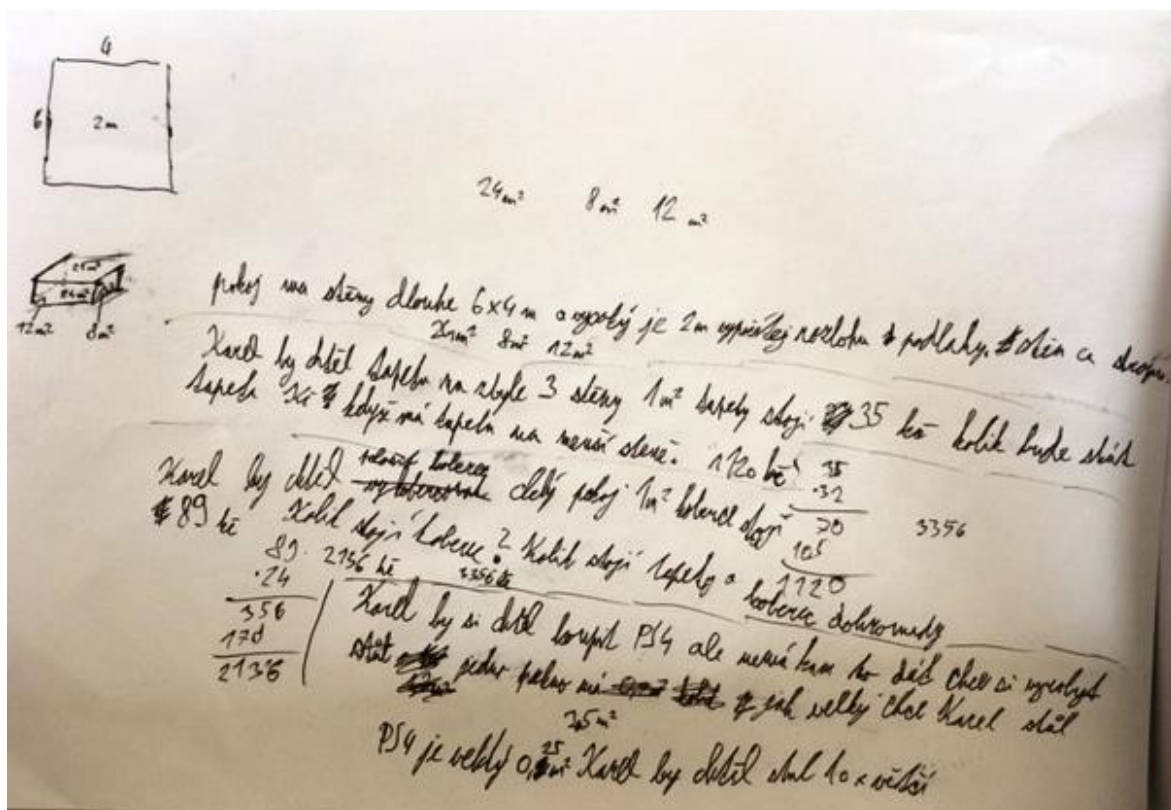 4
6 2m
24m² 8m² 12m²
24m²
12m² 8m²
pokoj ma stěny dlouhe 6x4 m a vysoký je 2m vypočítej rozlohu podlahy. stěn a stropu.
24m² 8m² 12m²
Karel by chtěl tapetu na zbyle 3 stěny 1m² tapety stojí 35 kč kolik bude stát
tapeta když má tapetu na menší stěně. 1120 kč
35
.32
70
105
1120
3356
Karel by chtěl celý pokoj 1m² koberce stojí
89 kč Kolik stojí koberec? Kolik stojí tapeta a koberec dohromady
2136 kč 3356 kč
89.
.24
356
178
2136
Karel by si chtěl koupit PS4 ale nemá kam to dát chce si vyrobit
stůl jedno jak velký chce Karel stůl
2,5m²
PS4 je velký 0,25m² Karel by chtěl stul 10 x větší